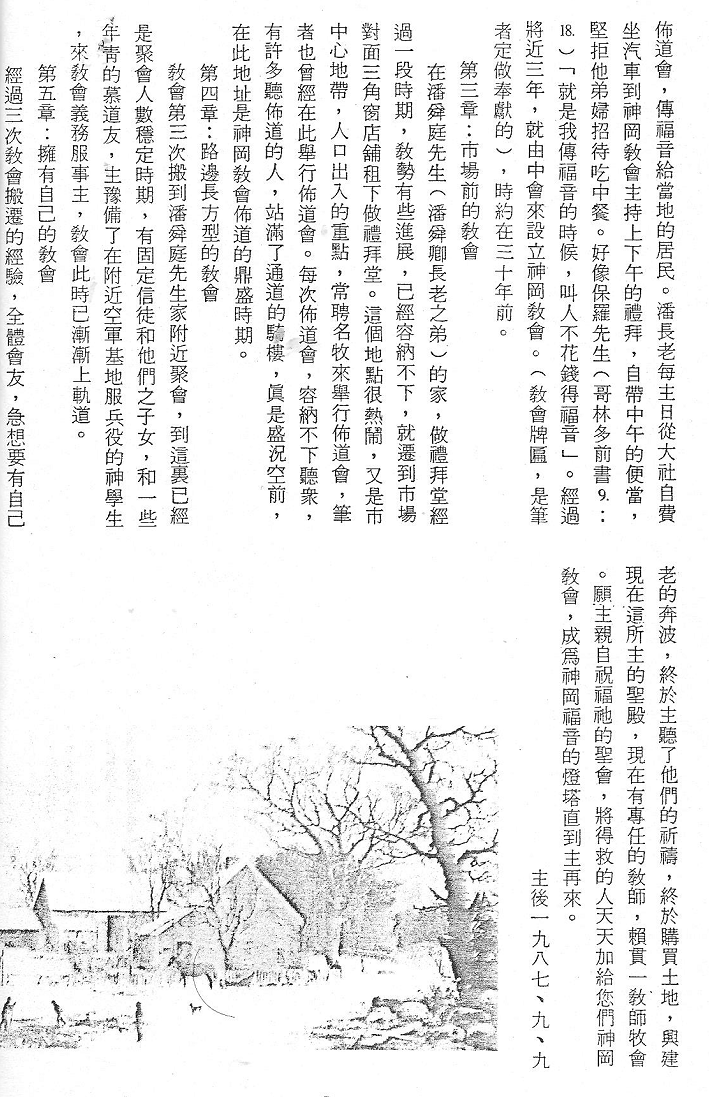 佈道會，傳福音給當地的居民。潘長老每主日從大社自費
坐汽車到神岡教會主持上下午的禮拜，自帶中午的便當，
堅拒他弟婦招待吃中餐。好像保羅先生（哥林多前書9.：
18.）「就是我傳福音的時候，叫人不花錢得福音」。經過
將近三年，就由中會來設立神岡教會。（教會牌匾，是筆
者定做奉獻的），時約在三十年前。
第三章：市場前的教會
在潘舜庭先生（潘舜卿長老之弟）的家，做禮拜堂經
過一段時期，教勢有些進展，已經容納不下，就遷到市場
對面三角窗店舖租下做禮拜堂。這個地點很熱鬧，又是市
中心地帶，人口出入的重點，常聘名牧來舉行佈道會，筆
者也曾經在此舉行佈道會。每次佈道會，容納不下聽衆，
有許多聽佈道的人，站滿了通道的騎樓，眞是盛況空前，
在此地址是神岡教會佈道的鼎盛時期。
第四章：路邊長方型的教會
教會第三次搬到潘舜庭先生家附近聚會，到這裏已經
是聚會人數穩定時期，有固定信徒和他們之子女，和一些
年靑的慕道友，主豫備了在附近空軍基地服兵役的神學生
，來教會義務服事主，教會此時已漸漸上軌道。
第五章：擁有自己的教會
經過三次教會搬遷的經驗，全體會友，急想要有自己
老的奔波，終於主聽了他們的祈禱，終於購買土地，興建
現在這所主的聖殿，現在有專任的教師，賴貫一教師牧會
。願主親自祝福祂的聖會，將得救的人天天加給您們神岡
教會，成爲神岡福音的燈塔直到主再來。
主後一九八七、九、九